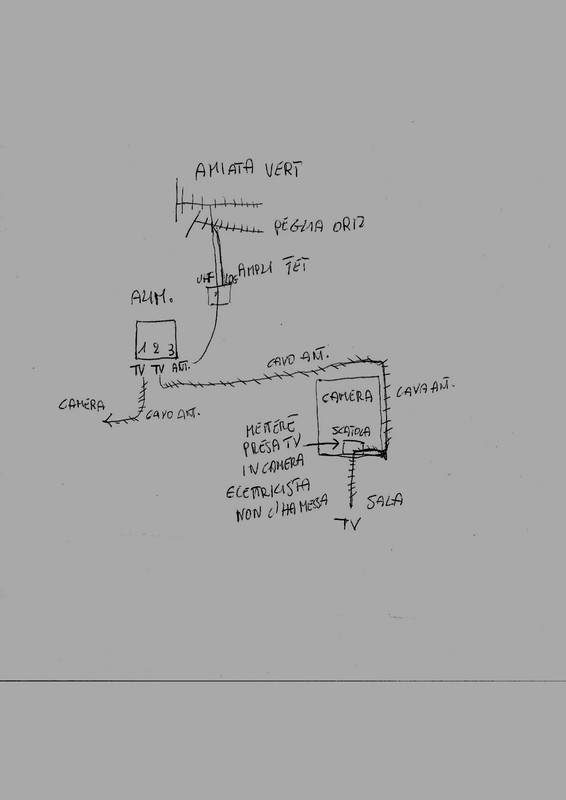 AMIATA VERT
PEGLIA ORIZ
AMPLI TET
UHF
ALIM.
1 2 3
TV TV ANT.
CAVO ANT.
CAMERA
CAVO ANT.
CAVA ANT.
CAMERA
SCATOLA
METTERE
PRESA TV
IN CAMERA
ELETTRICISTA
NON C'HA MESSA
SALA
TV